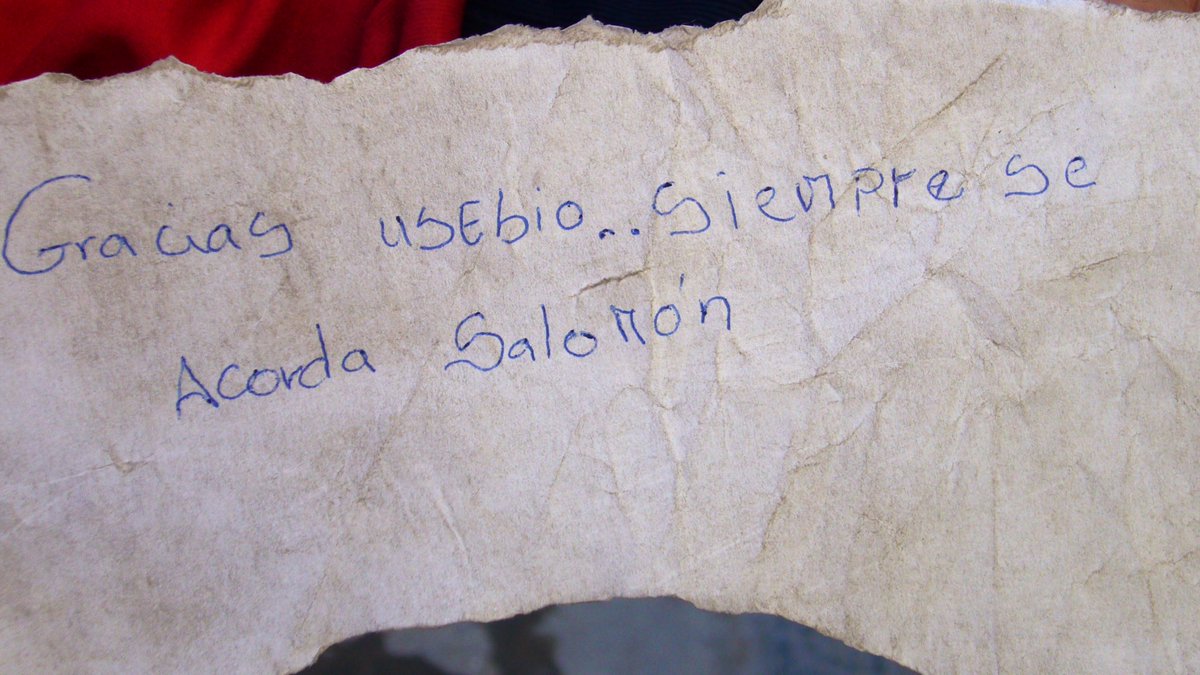 Gracias usEbio.. Siempre se
Acorda Salomón